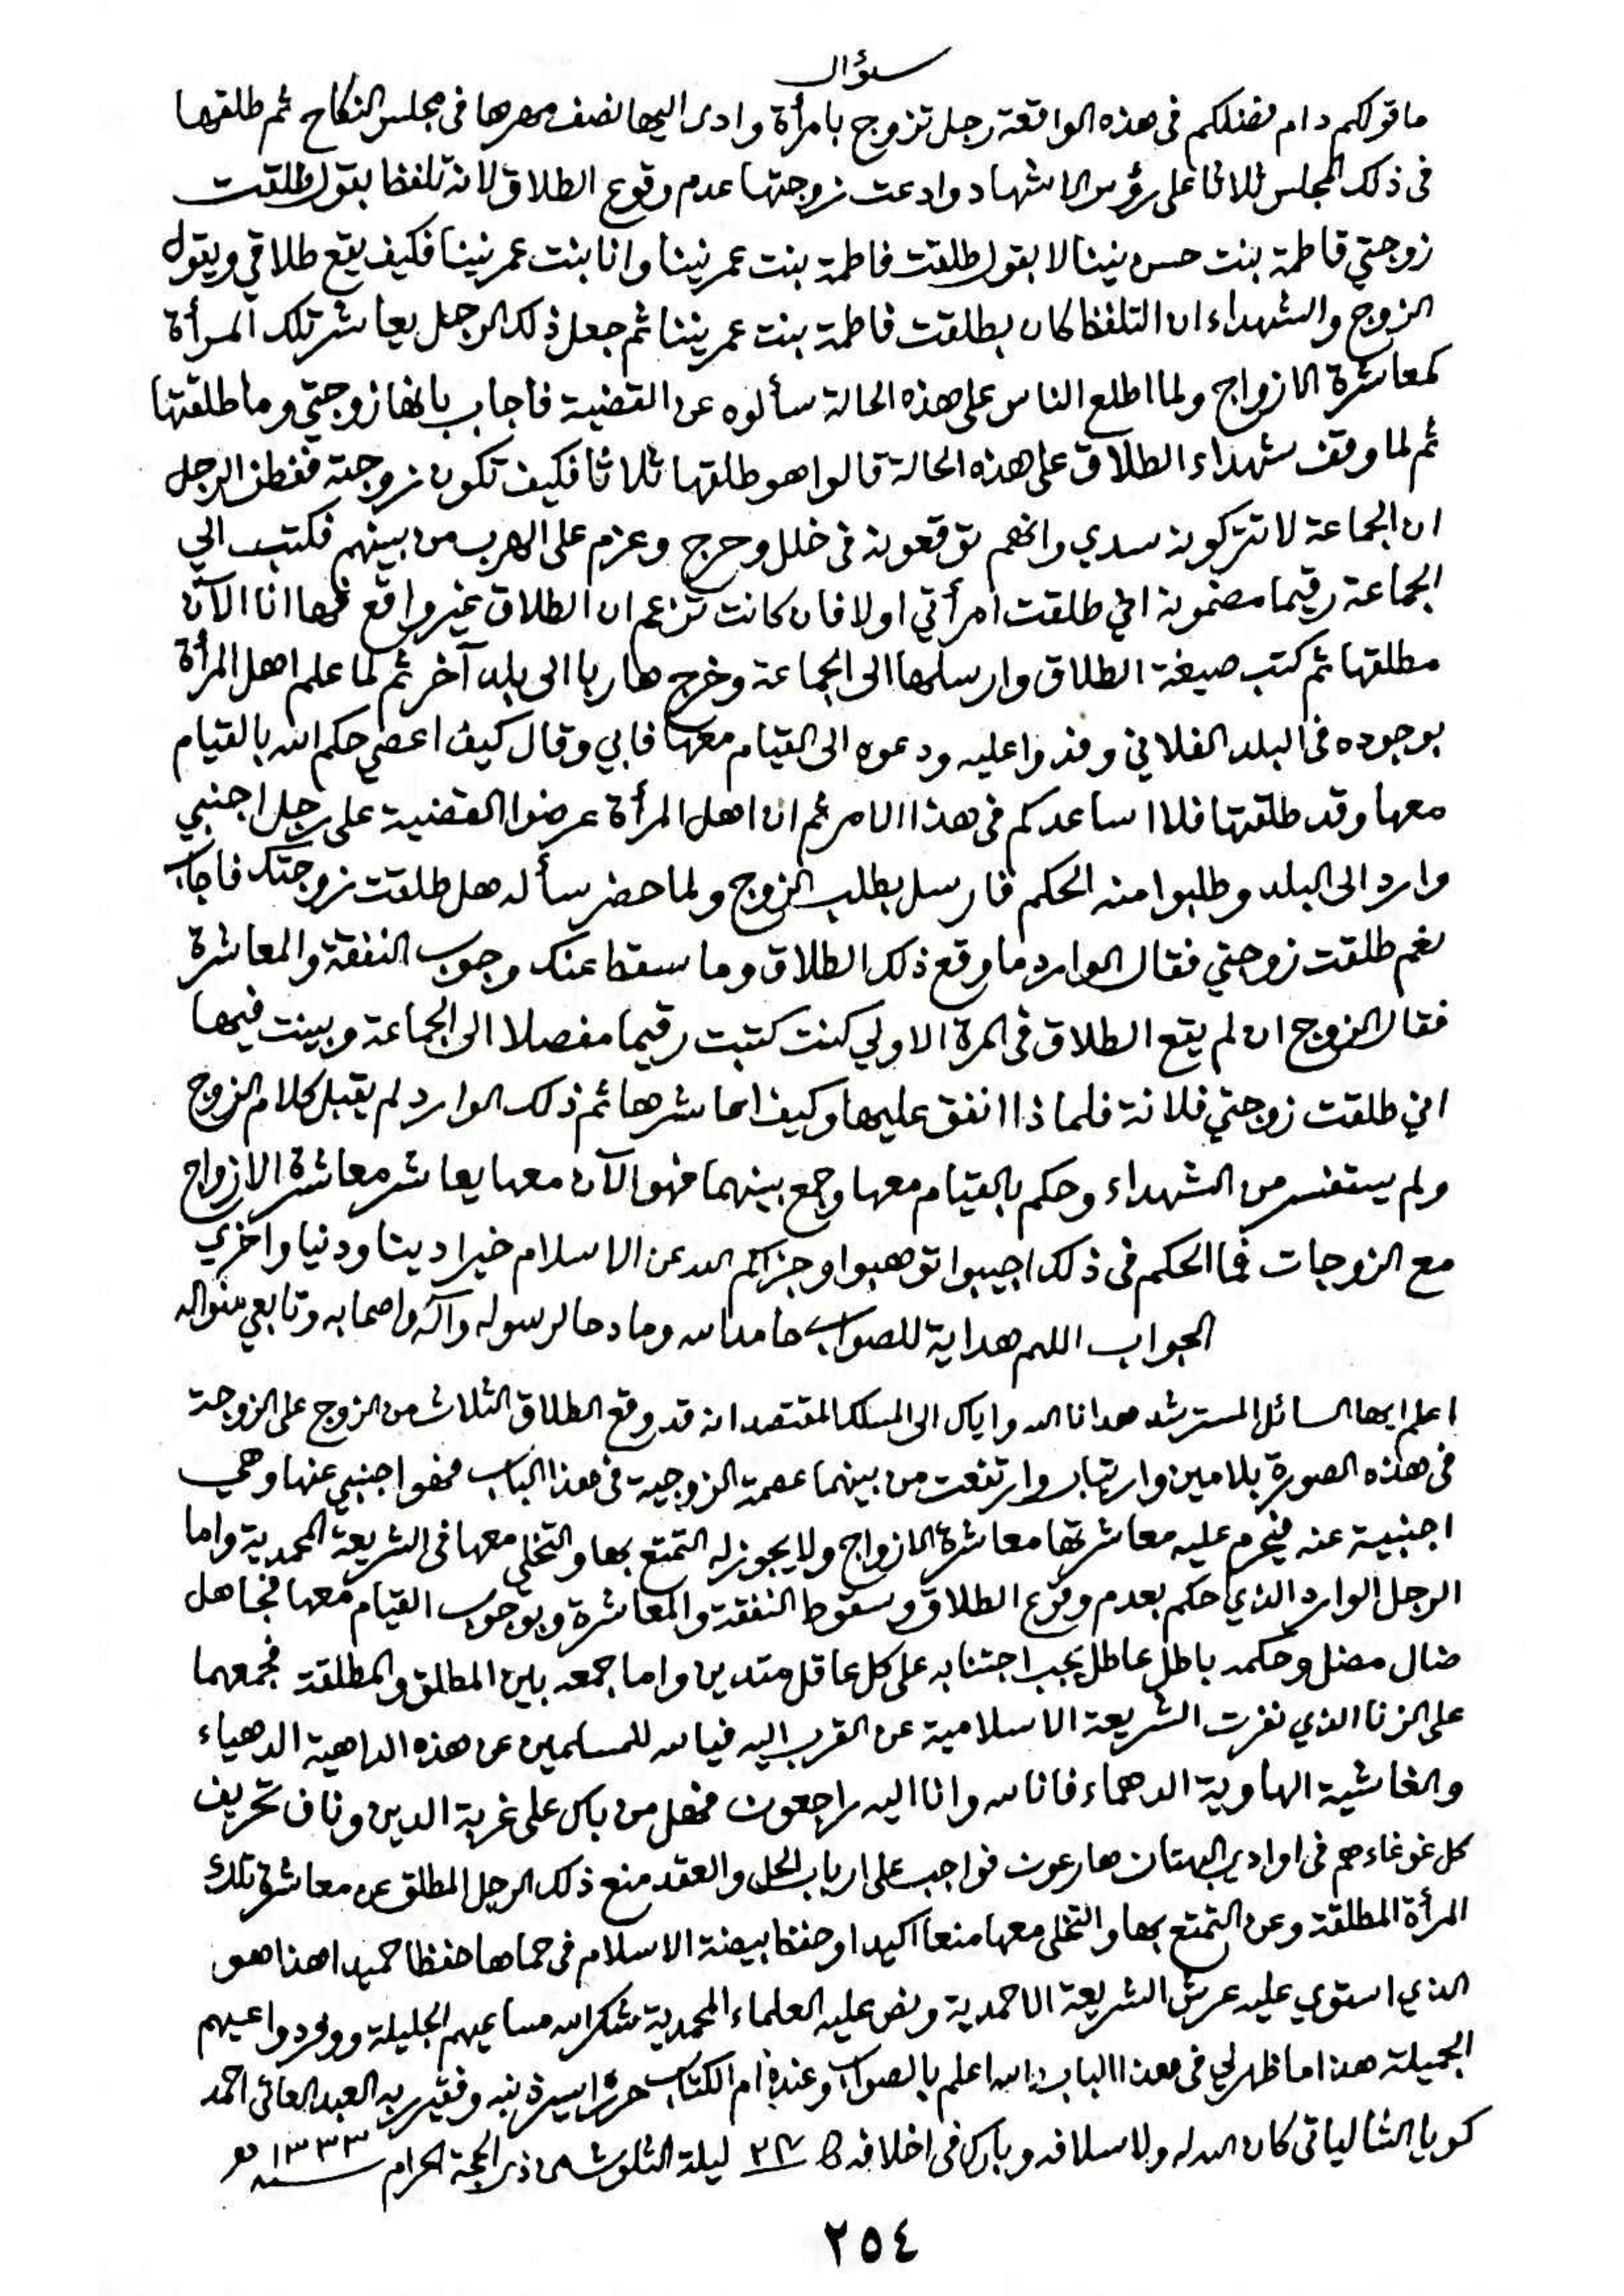 سؤال
ما قولكم دام فضلكم فى هذه الواقعة رجل تزوج بامرأة وادى اليها نصف مهرها فى مجلس النكاح ثم طلقها
فى ذلك المجلس ثلاثا على رؤس الاشهاد وادعت زوجتها عدم وقوع الطلاق لانه تلفظ بقول طلقت
زوجتي فاطمة بنت حسن نينا لا بقول طلقت فاطمة بنت عمر نينا وانا بنت عمر نينا فكيف يقع طلاقي ويقول
الزوج والشهداء ان التلفظ كان بطلقت فاطمة بنت عمر نينا ثم جعل ذلك الرجل يعاشر تلك المرأة
كمعاشرة الازواج ولما اطلع الناس على هذه الحالة سألوه عن القضية فاجاب بانها زوجتي وما طلقتها
ثم لما وقف شهداء الطلاق على هذه الحالة قالوا هو طلقها ثلاثا فكيف تكون زوجة ففطن الرجل
ان الجماعة لا تتركونه سدي وانهم توقعونه فى خلل وحرج وعزم على الهرب من بينهم فكتب الي
الجماعة رقيما مضمونه اني طلقت امرأتي اولا فان كانت تزعم ان الطلاق غير واقع فها انا الآن
مطلقها ثم كتب صيغة الطلاق وارسلها الى الجماعة وخرج هاربا الى بلد آخر ثم لما علم اهل المرأة
بوجوده فى البلد الفلاني وفدوا عليه ودعوه الى القيام معها فابي وقال كيف اعصي حكم الله بالقيام
معها وقد طلقتها فلا اساعدكم فى هذا الامر ثم ان اهل المرأة عرضوا القضية على رجل اجنبي
وارد الى البلد وطلبوا منه الحكم فارسل بطلب الزوج ولما حضر سأله هل طلقت زوجتك فاجاب
نعم طلقت زوجتي فقال الوارد ما وقع ذلك الطلاق وما سقط عنك وجوب النفقة والمعاشرة
فقال الزوج ان لم يقع الطلاق فى المرة الاولي كنت كتبت رقيما مفصلا الى الجماعة وبينت فيها
اني طلقت زوجتي فلانة فلماذا انفق عليها وكيف اعاشرها ثم ذلك الوارد لم يقبل كلام الزوج
ولم يستفسر من الشهداء وحكم بالقيام معها وجمع بينهما فهو الآن معها يعاشر معاشرة الازواج
مع الزوجات فما الحكم فى ذلك اجيبوا توهبوا وجزاكم الله عن الاسلام خيرا دينا ودنيا واخري
الجواب اللهم هداية للصواب حامدا لله ومادحا لرسوله وآله واصحابه وتابعي منواله
اعلم ايها السائل المسترشد هدانا الله واياك الى المسلك المقتصد انه قد وقع الطلاق الثلاث من الزوج على الزوجة
فى هذه الصورة بلا مين وارتياب وارتفعت من بينهما عصمة الزوجية فى هذا الباب فهو اجنبي عنها وهي
اجنبية عنه فيحرم عليه معاشرتها معاشرة الازواج ولا يجوز له التمتع بها والتخلي معها فى الشريعة المحمدية واما
الرجل الوارد الذي حكم بعدم وقوع الطلاق وسقوط النفقة والمعاشرة وبوجوب القيام معها فجاهل
ضال مضل وحكمه باطل عاطل يجب اجتنابه على كل عاقل متدين واما جمعه بين المطلق والمطلقة فجمعهما
على الزنا الذي نفرت الشريعة الاسلامية عن القرب اليه فيا لله للمسلمين عن هذه الداهية الدهياء
والغاشية الهاوية الدهماء فانا لله وانا اليه راجعون فهل من باك على غربة الدين وناف تحريف
كل غوغاء هم فى اوادي البهتان هارعون فواجب على ارباب الحل والعقد منع ذلك الرجل المطلق عن معاشرة تلك
المرأة المطلقة وعن التمتع بها والتخلى معها منعا اكيدا وحفظ بيضة الاسلام فى حماها حفظا حميدا هذا هو
الذي استوي عليه عرش الشريعة الاحمدية ونص عليه العلماء المحمدية شكر الله مساعيهم الجليلة ووفر دواعيهم
الجميلة هذا ما ظهر لي فى هذا الباب والله اعلم بالصواب وعنده ام الكتاب حرره اسير ذنبه وفقير ربه العبد العاتى احمد
كويا الشالياتى كان الله له ولاسلافه وبارك فى اخلافه ليلة الثلوث من ذى الحجة الحرام سنه ١٣٣٣
٢٥٤